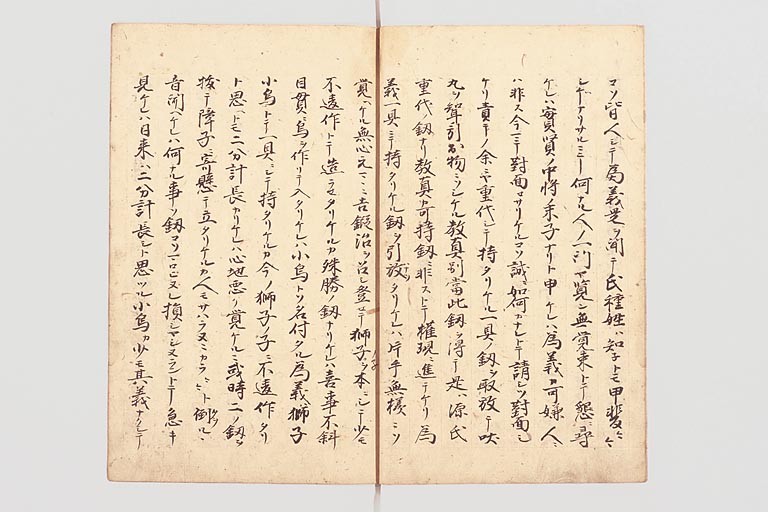 マソ皆人ニテ為義是ヲ聞テ氏種姓ハ知子トモ甲斐々々
シカリケリサルニテモ何ナル人ノ一門ヤ覧ト無覚束トテ懇ニ尋
ケレハ実賢ノ中将ノ末子ナリト申ケレハ為義カ可嫌人ニ
ハ非ス今マテ対面セサリケルコソ誠ニ如何カナレトテ請シテ対面シ
ケリ責ノ余ニヤ重代シテ持タリケル一具ノ釼ヲ取放テ吠
丸ヲ聟引出物ニソシケル教真別當此釼ヲ得テ是ハ源氏
重代ノ釼ナリ教真カ可持釼ニ非ストテ権現ニ進テケリ為
義一具ニテ持タリケル釼ヲ引放タリケレハ片手無様ニソ
覚ヘケル無心元ニ吉鍛冶ヲ召シ登セテ獅子ヲ本ニシテ少モ
不違作トテ造ラセタリケルカ殊勝ノ釼ナリケレハ喜事不斜
目貫ニ烏ヲ作リテ入タリケレハ小烏トソ名付タル為義獅子
小烏トテ一具ニシテ持タリケルカ今ノ獅子ノ子ニ不違作タリ
ト思ヘトモ二分計長カリケレハ心地悪ク覚ケルニ或時二ノ釼ヲ
抜テ障子ニ寄懸テ立タリケルカ人モサハラヌニカラ〻ト倒ル〻
音聞ヘケレハ何ナル事ソ釼コソコロヒヌレ損シヤシヌラントテ急キ
見ケレハ日来ハ二分計長シト思ツル小烏カ少モ其義ナクシテ